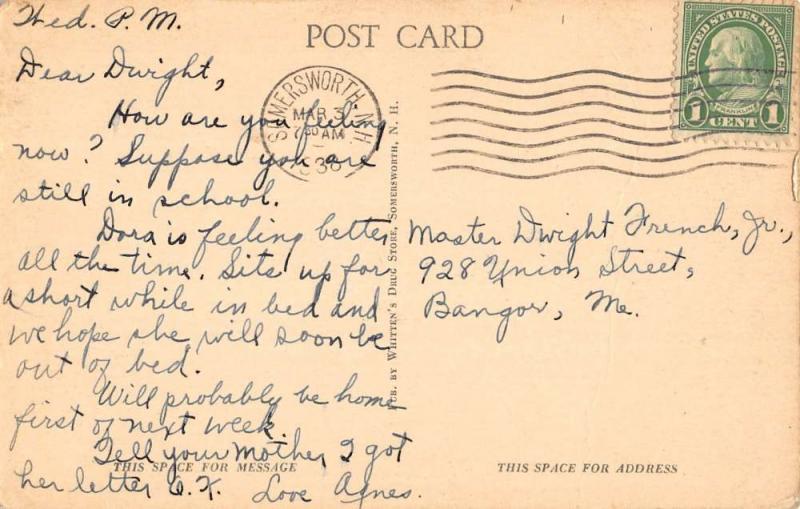 Wed. P.M.
POST CARD
Dear Dwight,
How are you feeling
now? Suppose you are
still in school.
Dora is feeling better
all the time. Sits up for
a short while in bed and
we hope she will soon be
out of bed.
Will probably be home
first of next week.
Tell your Mother I got
her letter O.K. Love Agnes.
THIS SPACE FOR MESSAGE
SOMERSWORTH N.H.
MAR 3
7 30 AM
PUB. BY WHITTEN'S DRUG STORE, SOMERSWORTH, N. H.
UNITED STATES POSTAGE
FRANKLIN
1 CENT 1
Master Dwight French, Jr.,
928 Union Street,
Bangor, Me.
THIS SPACE FOR ADDRESS